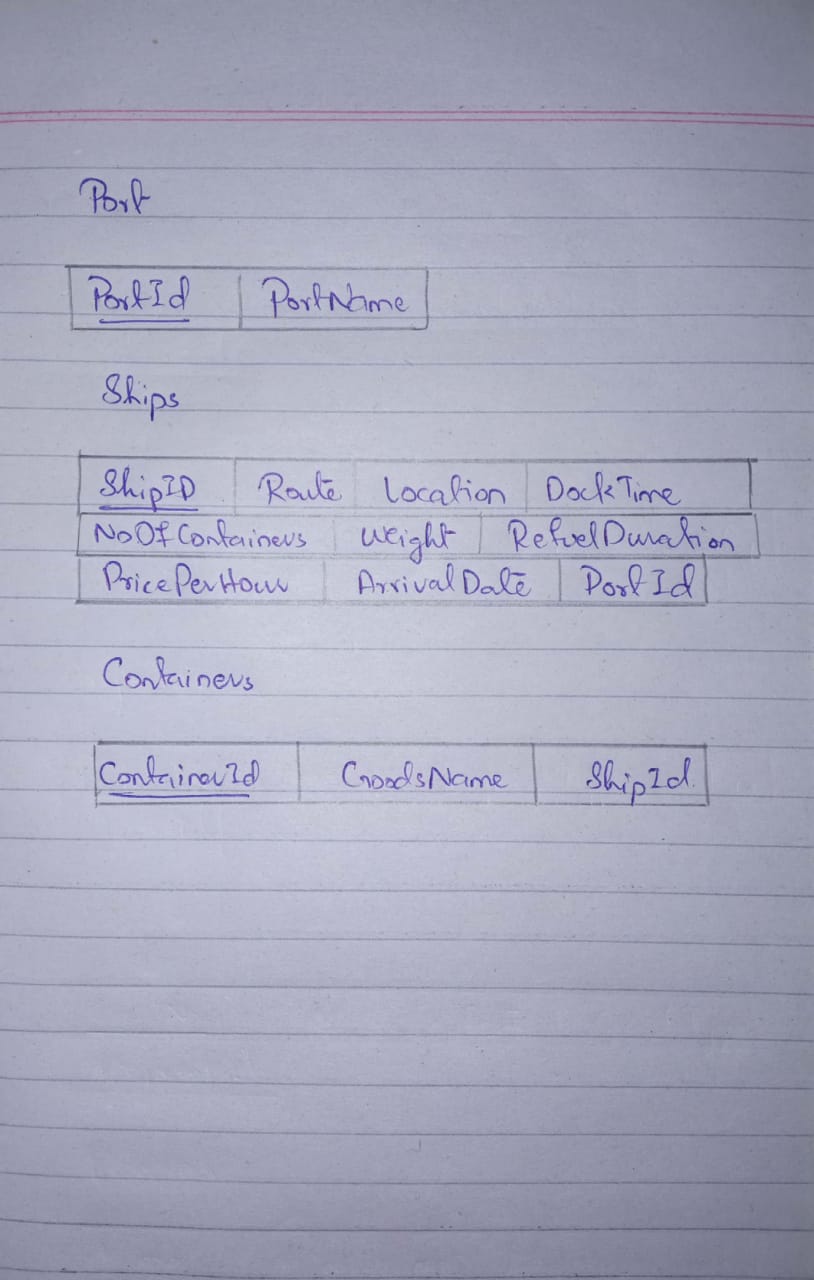 Port
PortId PortName
Ships
ShipID Route Location DockTime
NoOfContainers Weight RefuelDuration
PricePerHour ArrivalDate PortId
Containers
ContainerId GoodsName ShipId